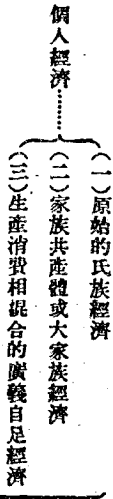 個人經濟………
(一)原始的氏族經濟
(二)家族共產體或大家族經濟
(三)生產消費相混合的廣義自足經濟